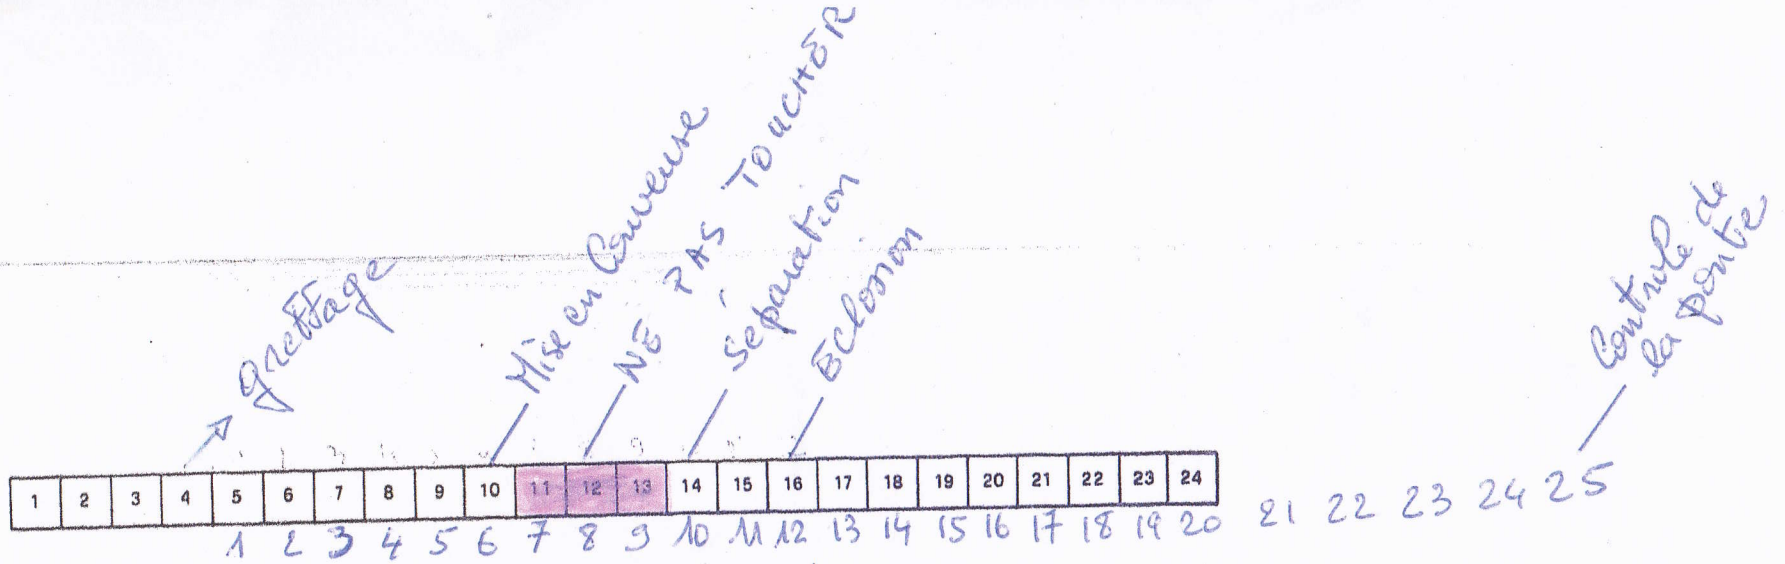 greffage
Mise en Couveuse
NE PAS TOUCHER
Séparation
Éclosion
Controle de
la ponte
1 2 3 4 5 6 7 8 9 10 11 12 13 14 15 16 17 18 19 20 21 22 23 24
1 2 3 4 5 6 7 8 9 10 11 12 13 14 15 16 17 18 19 20 21 22 23 24 25